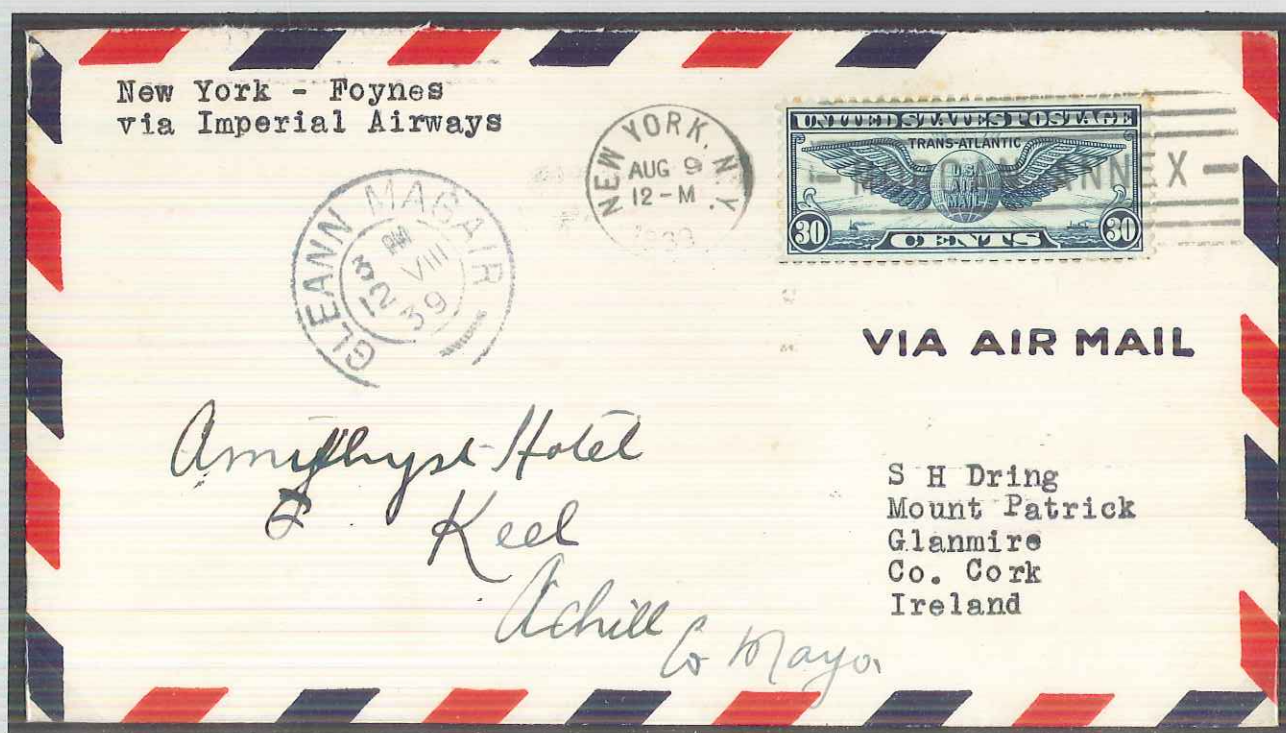 New York - Foynes
via Imperial Airways
NEW YORK, N.Y.
AUG 9
12-M
1939
UNITED STATES POSTAGE
TRANS-ATLANTIC
U.S.
AIR
MAIL
30 CENTS 30
MORGAN ANNEX
GLEANN MAGAIR
AM
23 VIII
39
VIA AIR MAIL
Amythyst Hotel
Keel
Achill
Co Mayo
S H Dring
Mount Patrick
Glanmire
Co. Cork
Ireland